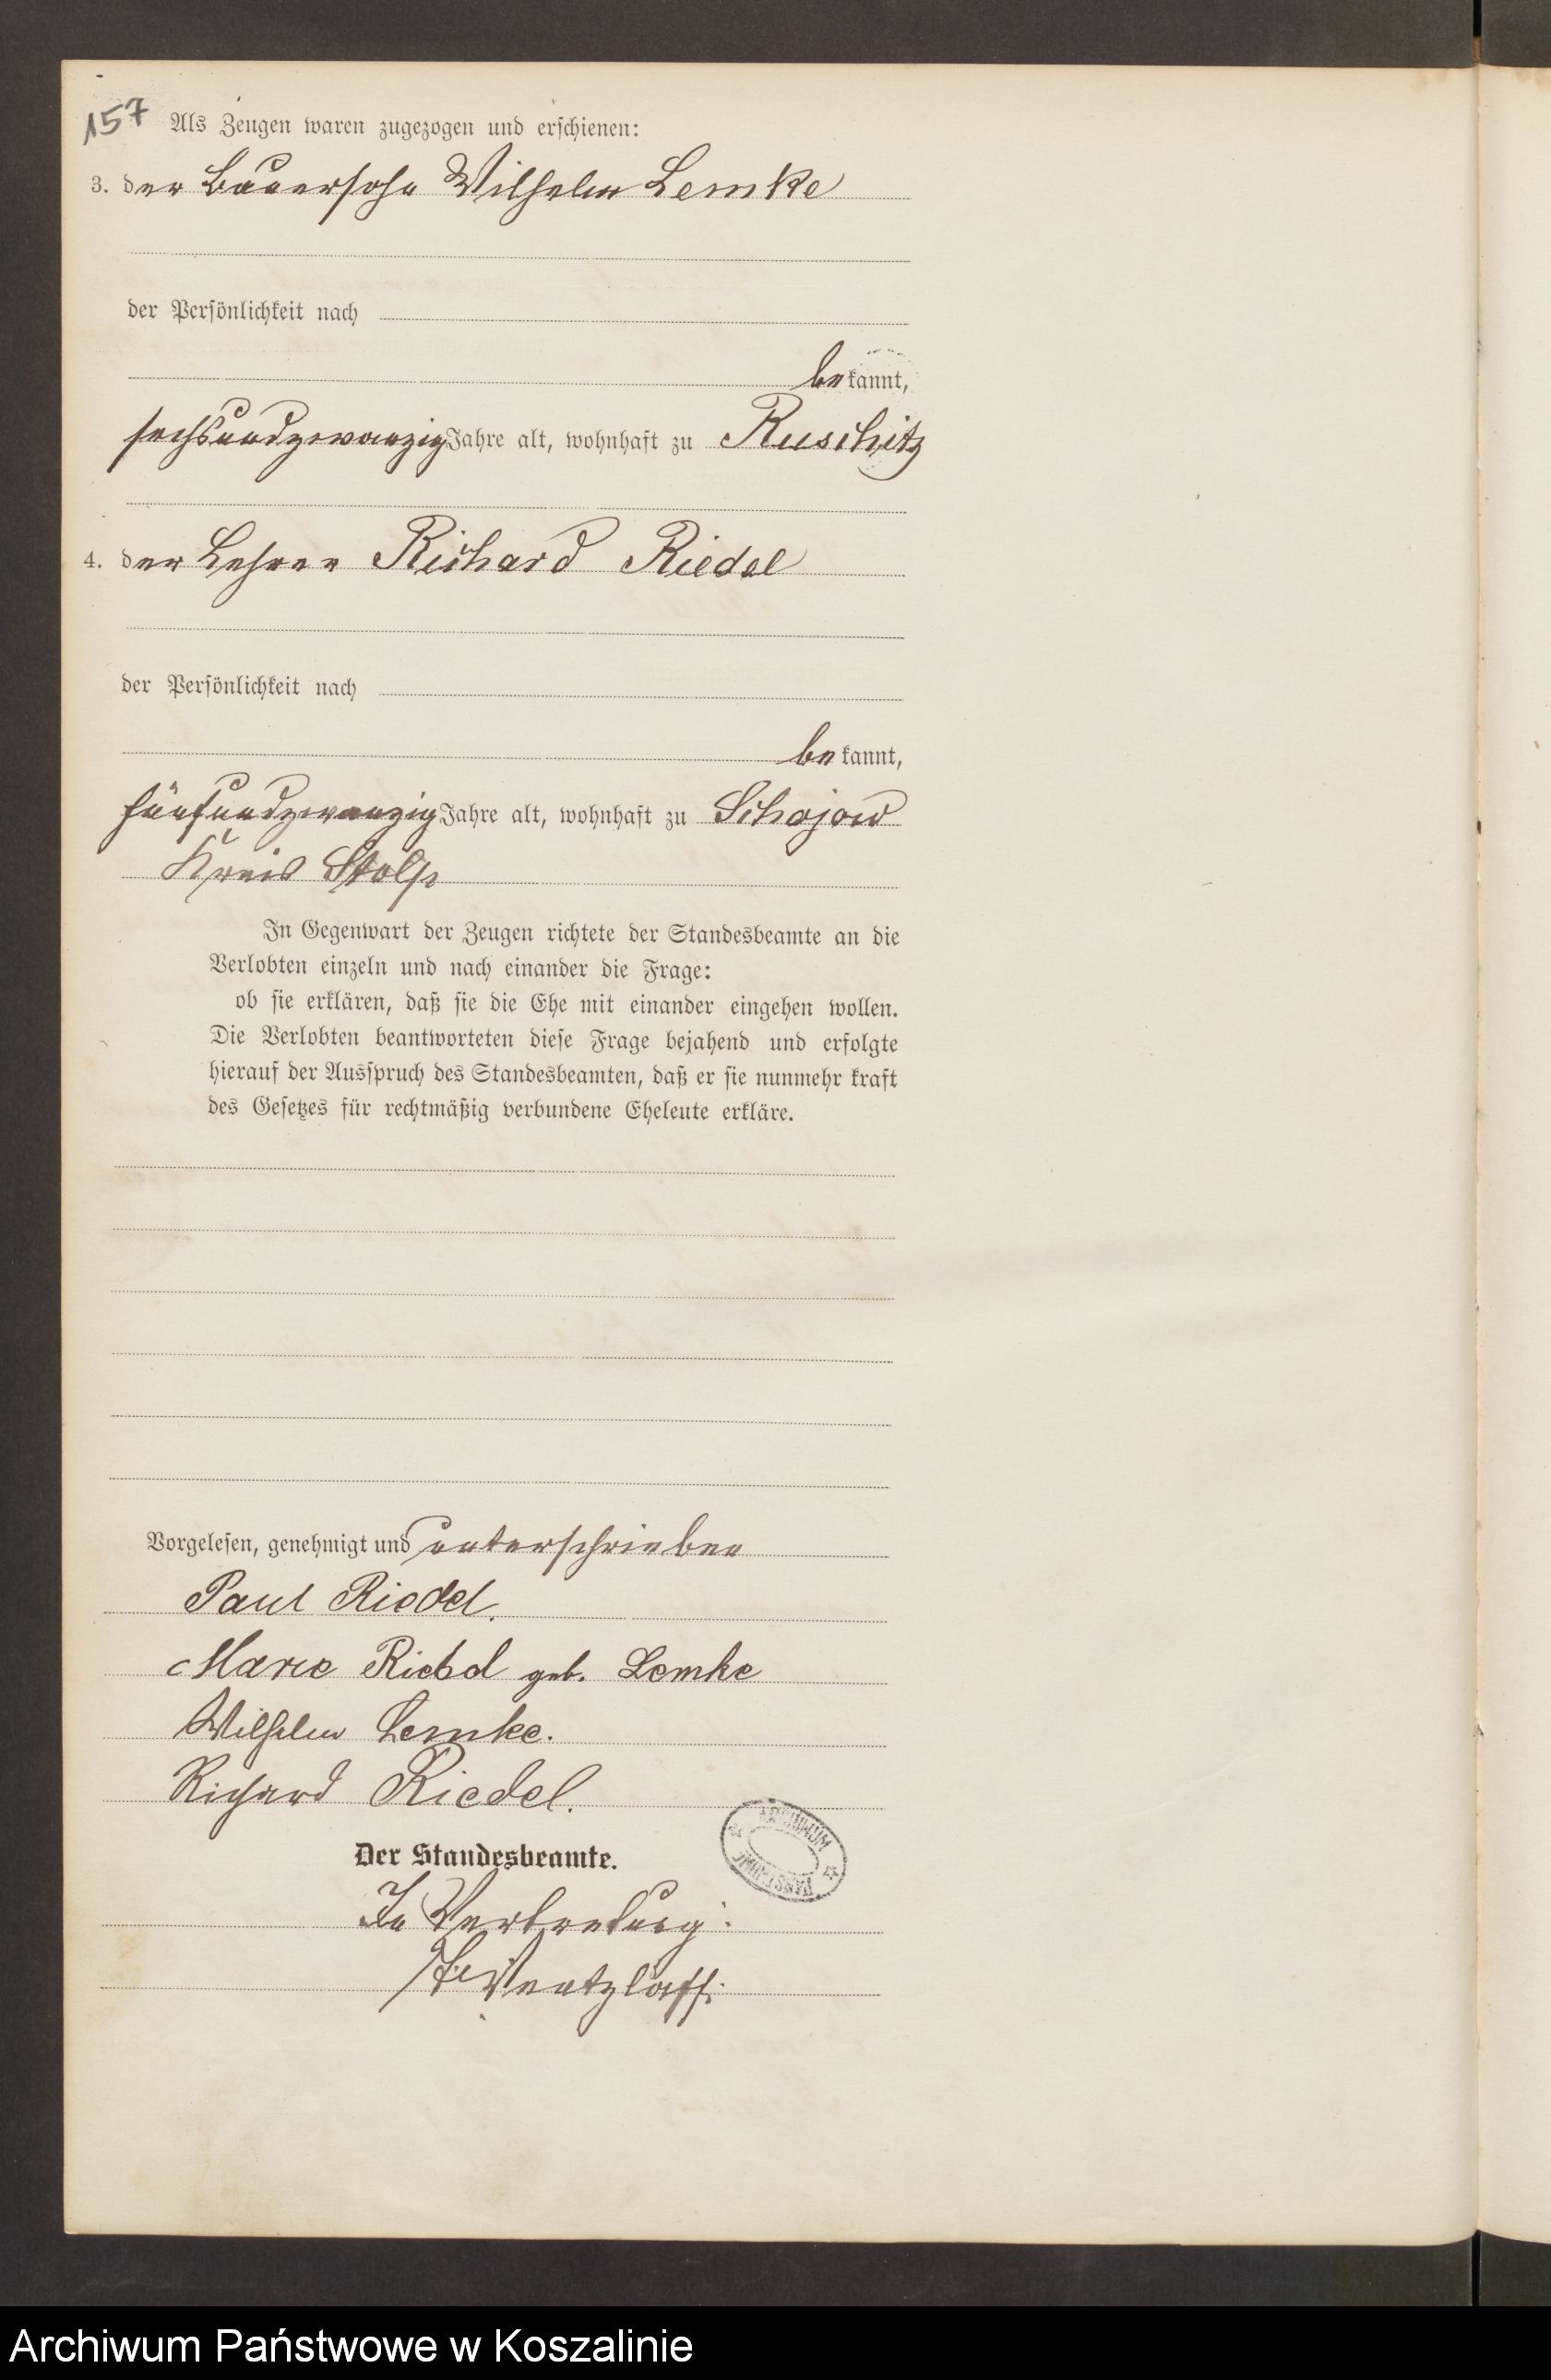 157 Als Zeugen waren zugezogen und erschienen:
3. der Bauersohn Wilhelm Lemke
der Persönlichkeit nach
bekannt,
sechsundzwanzig Jahre alt, wohnhaft zu Ruschitz
4. der Lehrer Richard Riedel
der Persönlichkeit nach
bekannt,
fünfundzwanzig Jahre alt, wohnhaft zu Schojow
Kreis Stolp
In Gegenwart der Zeugen richtete der Standesbeamte an die
Verlobten einzeln und nach einander die Frage:
ob sie erklären, daß sie die Ehe mit einander eingehen wollen.
Die Verlobten beantworteten diese Frage bejahend und erfolgte
hierauf der Ausspruch des Standesbeamten, daß er sie nunmehr kraft
des Gesetzes für rechtmäßig verbundene Eheleute erkläre.
Vorgelesen, genehmigt und unterschrieben
Paul Riedel.
Marie Riedel geb. Lemke
Wilhelm Lemke.
Richard Riedel.
ARCHIWUM
PAŃSTWOWE
Der Standesbeamte.
In Vertretung.
Wentzlaff.
Archiwum Państwowe w Koszalinie